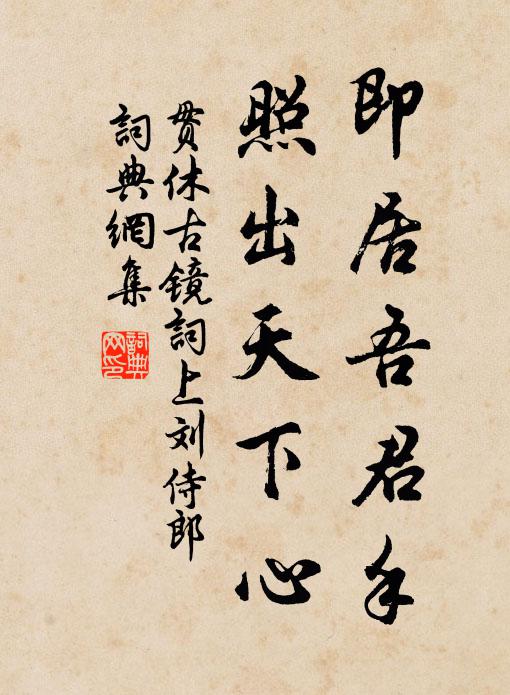 即居吾君手
照出天下心
贯休古镜詞上刘侍郎
詞典網集
詞典
网印